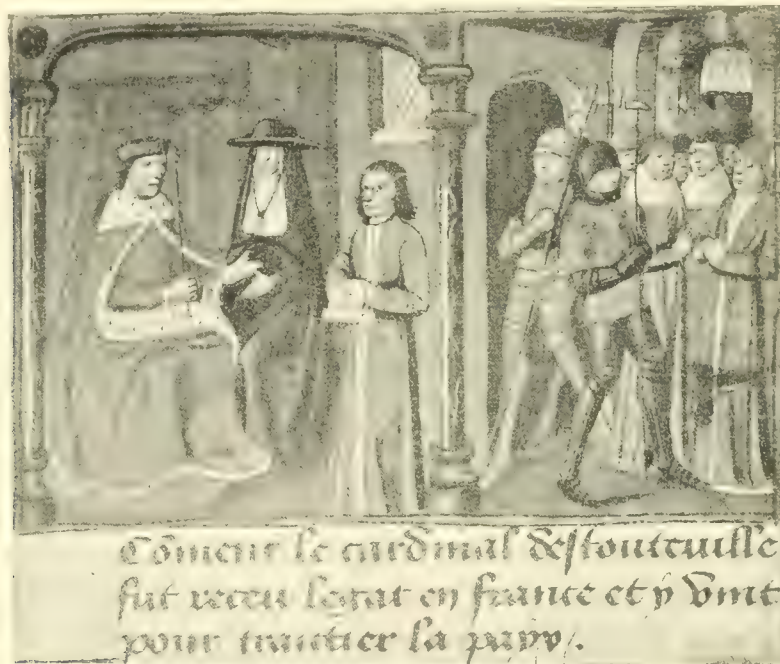 Cõment le cardinal destouteuille
fut receu legat en france et y vint
pour traictier la paix /.